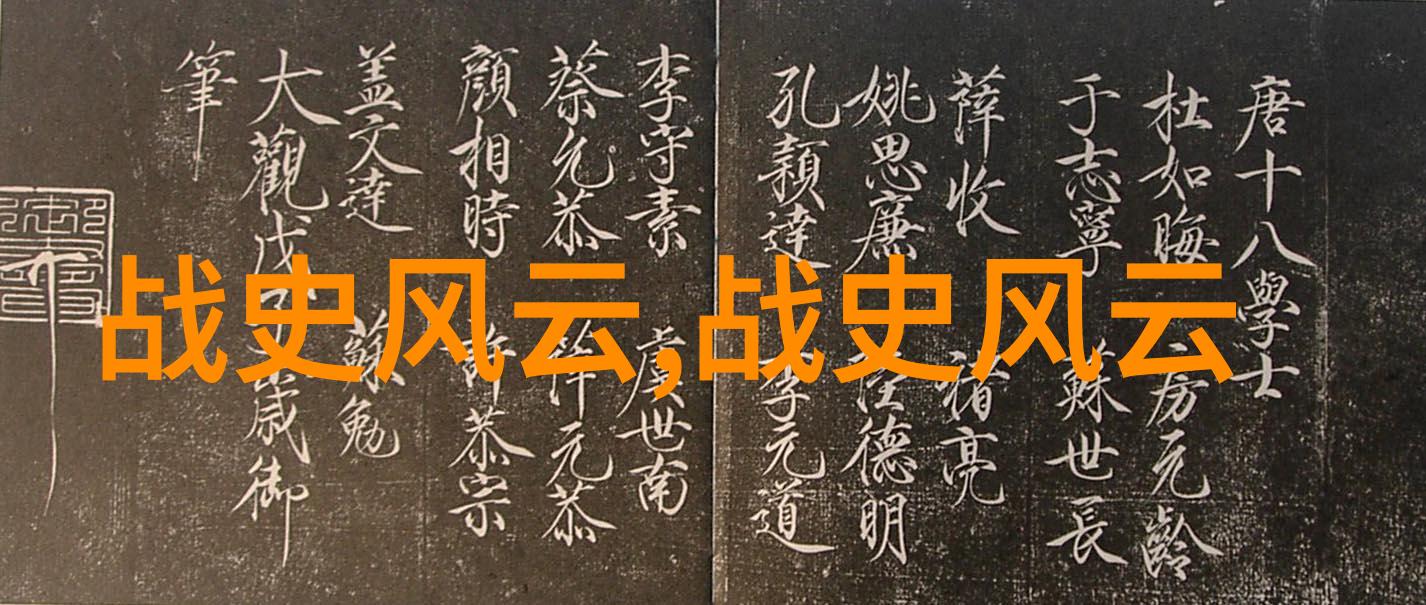 唐十八學士
杜如晦 房元齡
于志寧 蘇世長
薛收 褚亮
姚思廉 德明
孔穎達 李元道
李守素 虞世南
蔡允恭 元恭
顏相時 許恭宗
盖文達 蘇勉
大觀戊歲御
筆
战史风云,战史风云